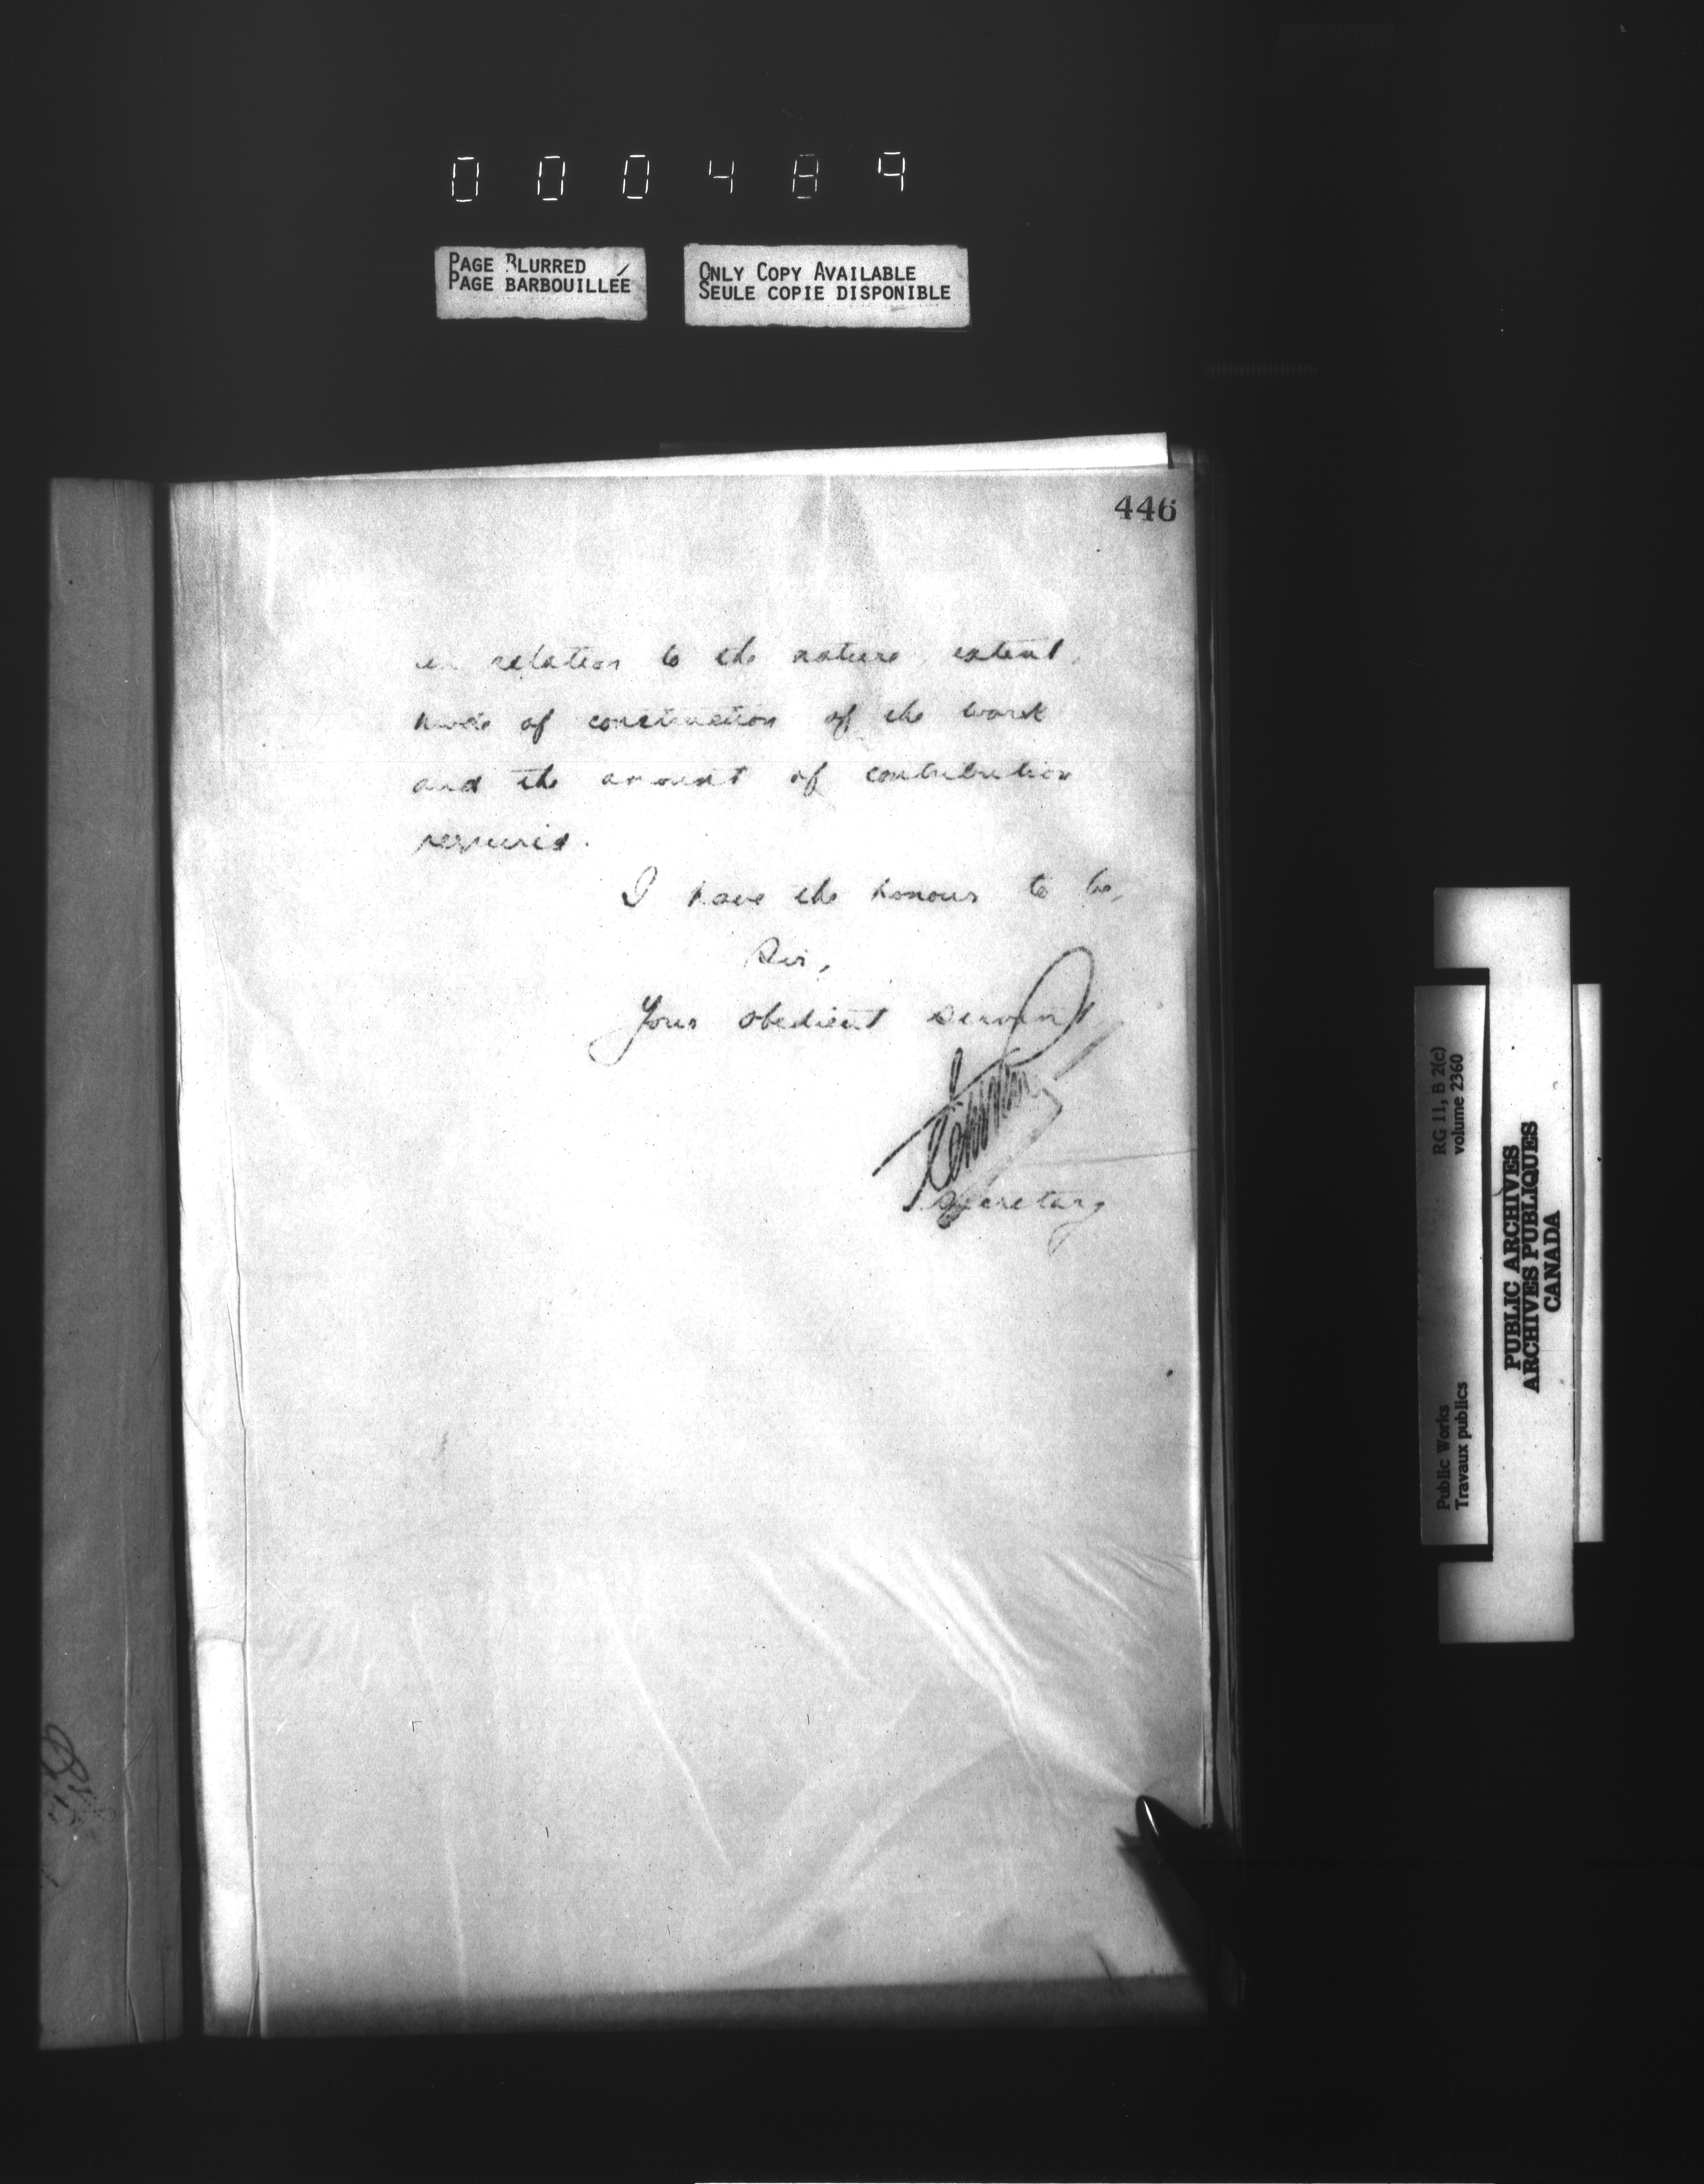 000489
PAGE BLURRED
PAGE BARBOUILLÉE
ONLY COPY AVAILABLE
SEULE COPIE DISPONIBLE
446
in relation to the nature, extent,
mode of construction of the work
and the amount of contribution
required.
I have the honour to be,
Sir,
Your obedient servant
Secretary
RG 11, B 2(c)
volume 2360
Public Works
Travaux publics
PUBLIC ARCHIVES
ARCHIVES PUBLIQUES
CANADA